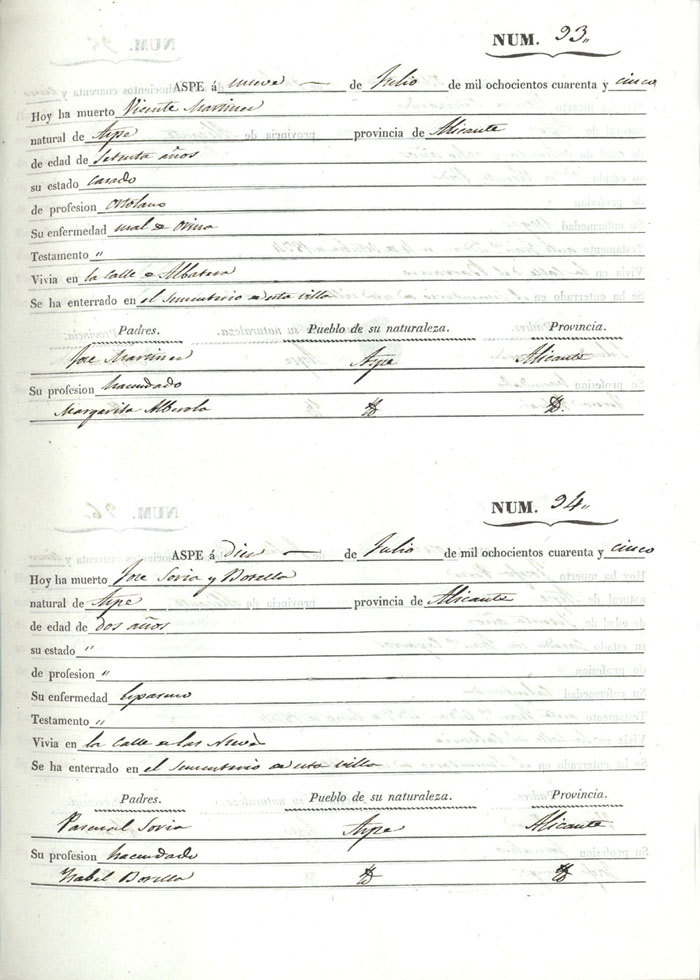 NUM. 93.,
ASPE á nueve de Julio de mil ochocientos cuarenta y cinco
Hoy ha muerto Vicente Martinez
natural de Aspe provincia de Alicante
de edad de Setenta años
su estado casado
de profesion
Su enfermedad mal de Orina
Testamento "
Vivia en la Calle de Albatera
Se ha enterrado en el Sementerio de esta villa
Padres. Pueblo de su naturaleza. Provincia.
Jose Martinez Aspe Alicante
Su profesion hacendado
Margarita Alberola
NUM. 94.,
ASPE á Dies de Julio de mil ochocientos cuarenta y cinco
Hoy ha muerto Jose Soria y Botella
natural de Aspe provincia de Alicante
de edad de dos años
su estado "
de profesion "
Su enfermedad
Testamento "
Vivia en la Calle de las Nieves
Se ha enterrado en el Sementerio de esta villa
Padres. Pueblo de su naturaleza. Provincia.
Pascual Soria Aspe Alicante
Su profesion hacendado
Ysabel Botella